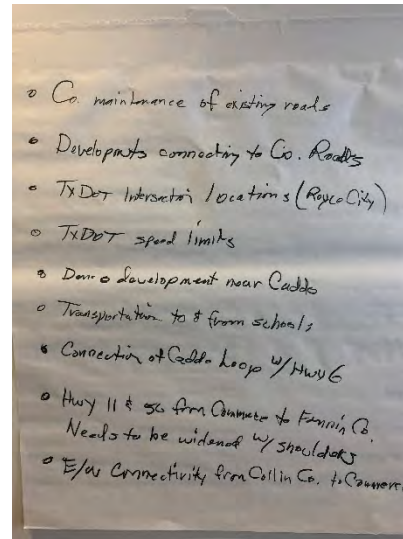 • Co. maintenance of existing roads
• Developmts connecting to Co. Roads
• TxDOT Intersection locations (Royce City)
• TxDOT speed limits
• Dense development near Caddo
• Transportation to & from schools
• Connection of Caddo Loop w/ Hwy 6
• Hwy 11 & 50 from Commerce to Fannin Co.
Needs to be widened w/ shoulders
• E/W Connectivity from Collin Co. to Commerc